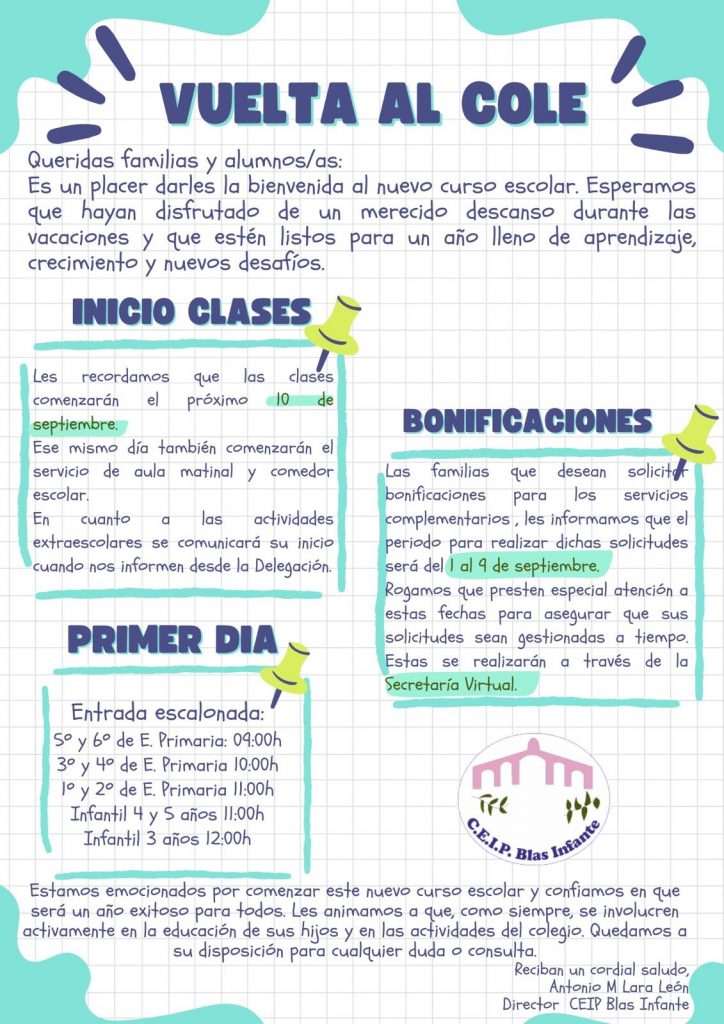 VUELTA AL COLE
Queridas familias y alumnos/as:
Es un placer darles la bienvenida al nuevo curso escolar. Esperamos
que hayan disfrutado de un merecido descanso durante las
vacaciones y que estén listos para un año lleno de aprendizaje,
crecimiento y nuevos desafíos.
INICIO CLASES
Les recordamos que las clases
comenzarán el próximo 10 de
septiembre.
Ese mismo día también comenzarán el
servicio de aula matinal y comedor
escolar.
En cuanto a las actividades
extraescolares se comunicará su inicio
cuando nos informen desde la Delegación.
BONIFICACIONES
Las familias que desean solicitar
bonificaciones para los servicios
complementarios , les informamos que el
periodo para realizar dichas solicitudes
será del 1 al 9 de septiembre.
Rogamos que presten especial atención a
estas fechas para asegurar que sus
solicitudes sean gestionadas a tiempo.
Estas se realizarán a través de la
Secretaría Virtual.
PRIMER DIA
Entrada escalonada:
5º y 6º de E. Primaria: 09:00h
3º y 4º de E. Primaria 10:00h
1º y 2º de E. Primaria 11:00h
Infantil 4 y 5 años 11:00h
Infantil 3 años 12:00h
C.E.I.P. Blas Infante
Estamos emocionados por comenzar este nuevo curso escolar y confiamos en que
será un año exitoso para todos. Les animamos a que, como siempre, se involucren
activamente en la educación de sus hijos y en las actividades del colegio. Quedamos a
su disposición para cualquier duda o consulta.
Reciban un cordial saludo,
Antonio M Lara León
Director CEIP Blas Infante